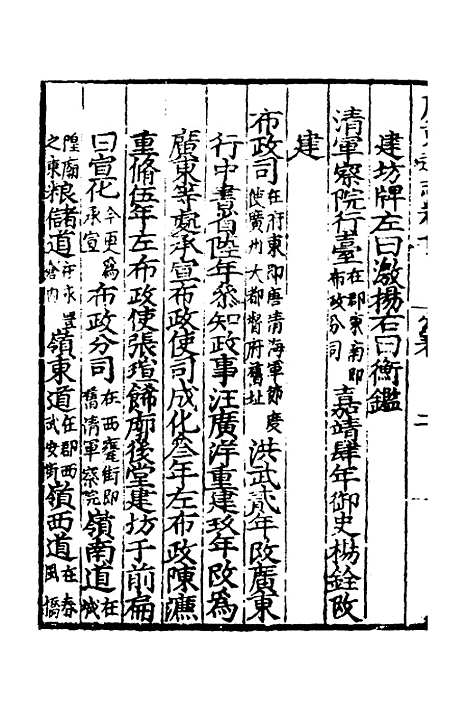 建坊牌左曰激揚右曰衡鑑
清軍察院行臺在郡東南即布政分司嘉靖肆年御史楊銓改
建
布政司在府東即唐清海軍節度使廣州大都督府舊址洪武貳年改廣東
行中書省陸年叅知政事汪廣洋重建玖年改為
廣東等處承宣布政使司成化叁年左布政陳濂
重脩伍年左布政使張瑄餙廊後堂建坊于前扁
曰宣化今更為承宣布政分司在西竈街即舊清軍察院嶺南道在城
隍廟之東粮儲道在永豐倉內嶺東道在郡西武安街嶺西道在春風橋